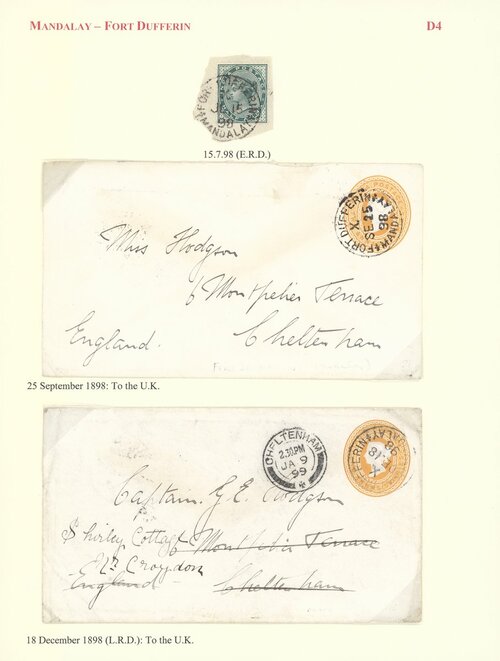 MANDALAY – FORT DUFFERIN
D4
FORT DUFFERIN
JL 15
98
MANDALAY
15.7.98 (E.R.D.)
FORT DUFFERIN
X
SE 25
98
MANDALAY
Miss Hodgson
6 Montpelier Terrace
England.
Cheltenham
25 September 1898: To the U.K.
CHELTENHAM
2.30PM
JA 9
99
FFERIN
X
18
98
DALAY
Captain. G. E. Hodgson
Shirley Cottage
6 Montpelier Terrace
Croydon
England
Cheltenham
18 December 1898 (L.R.D.): To the U.K.